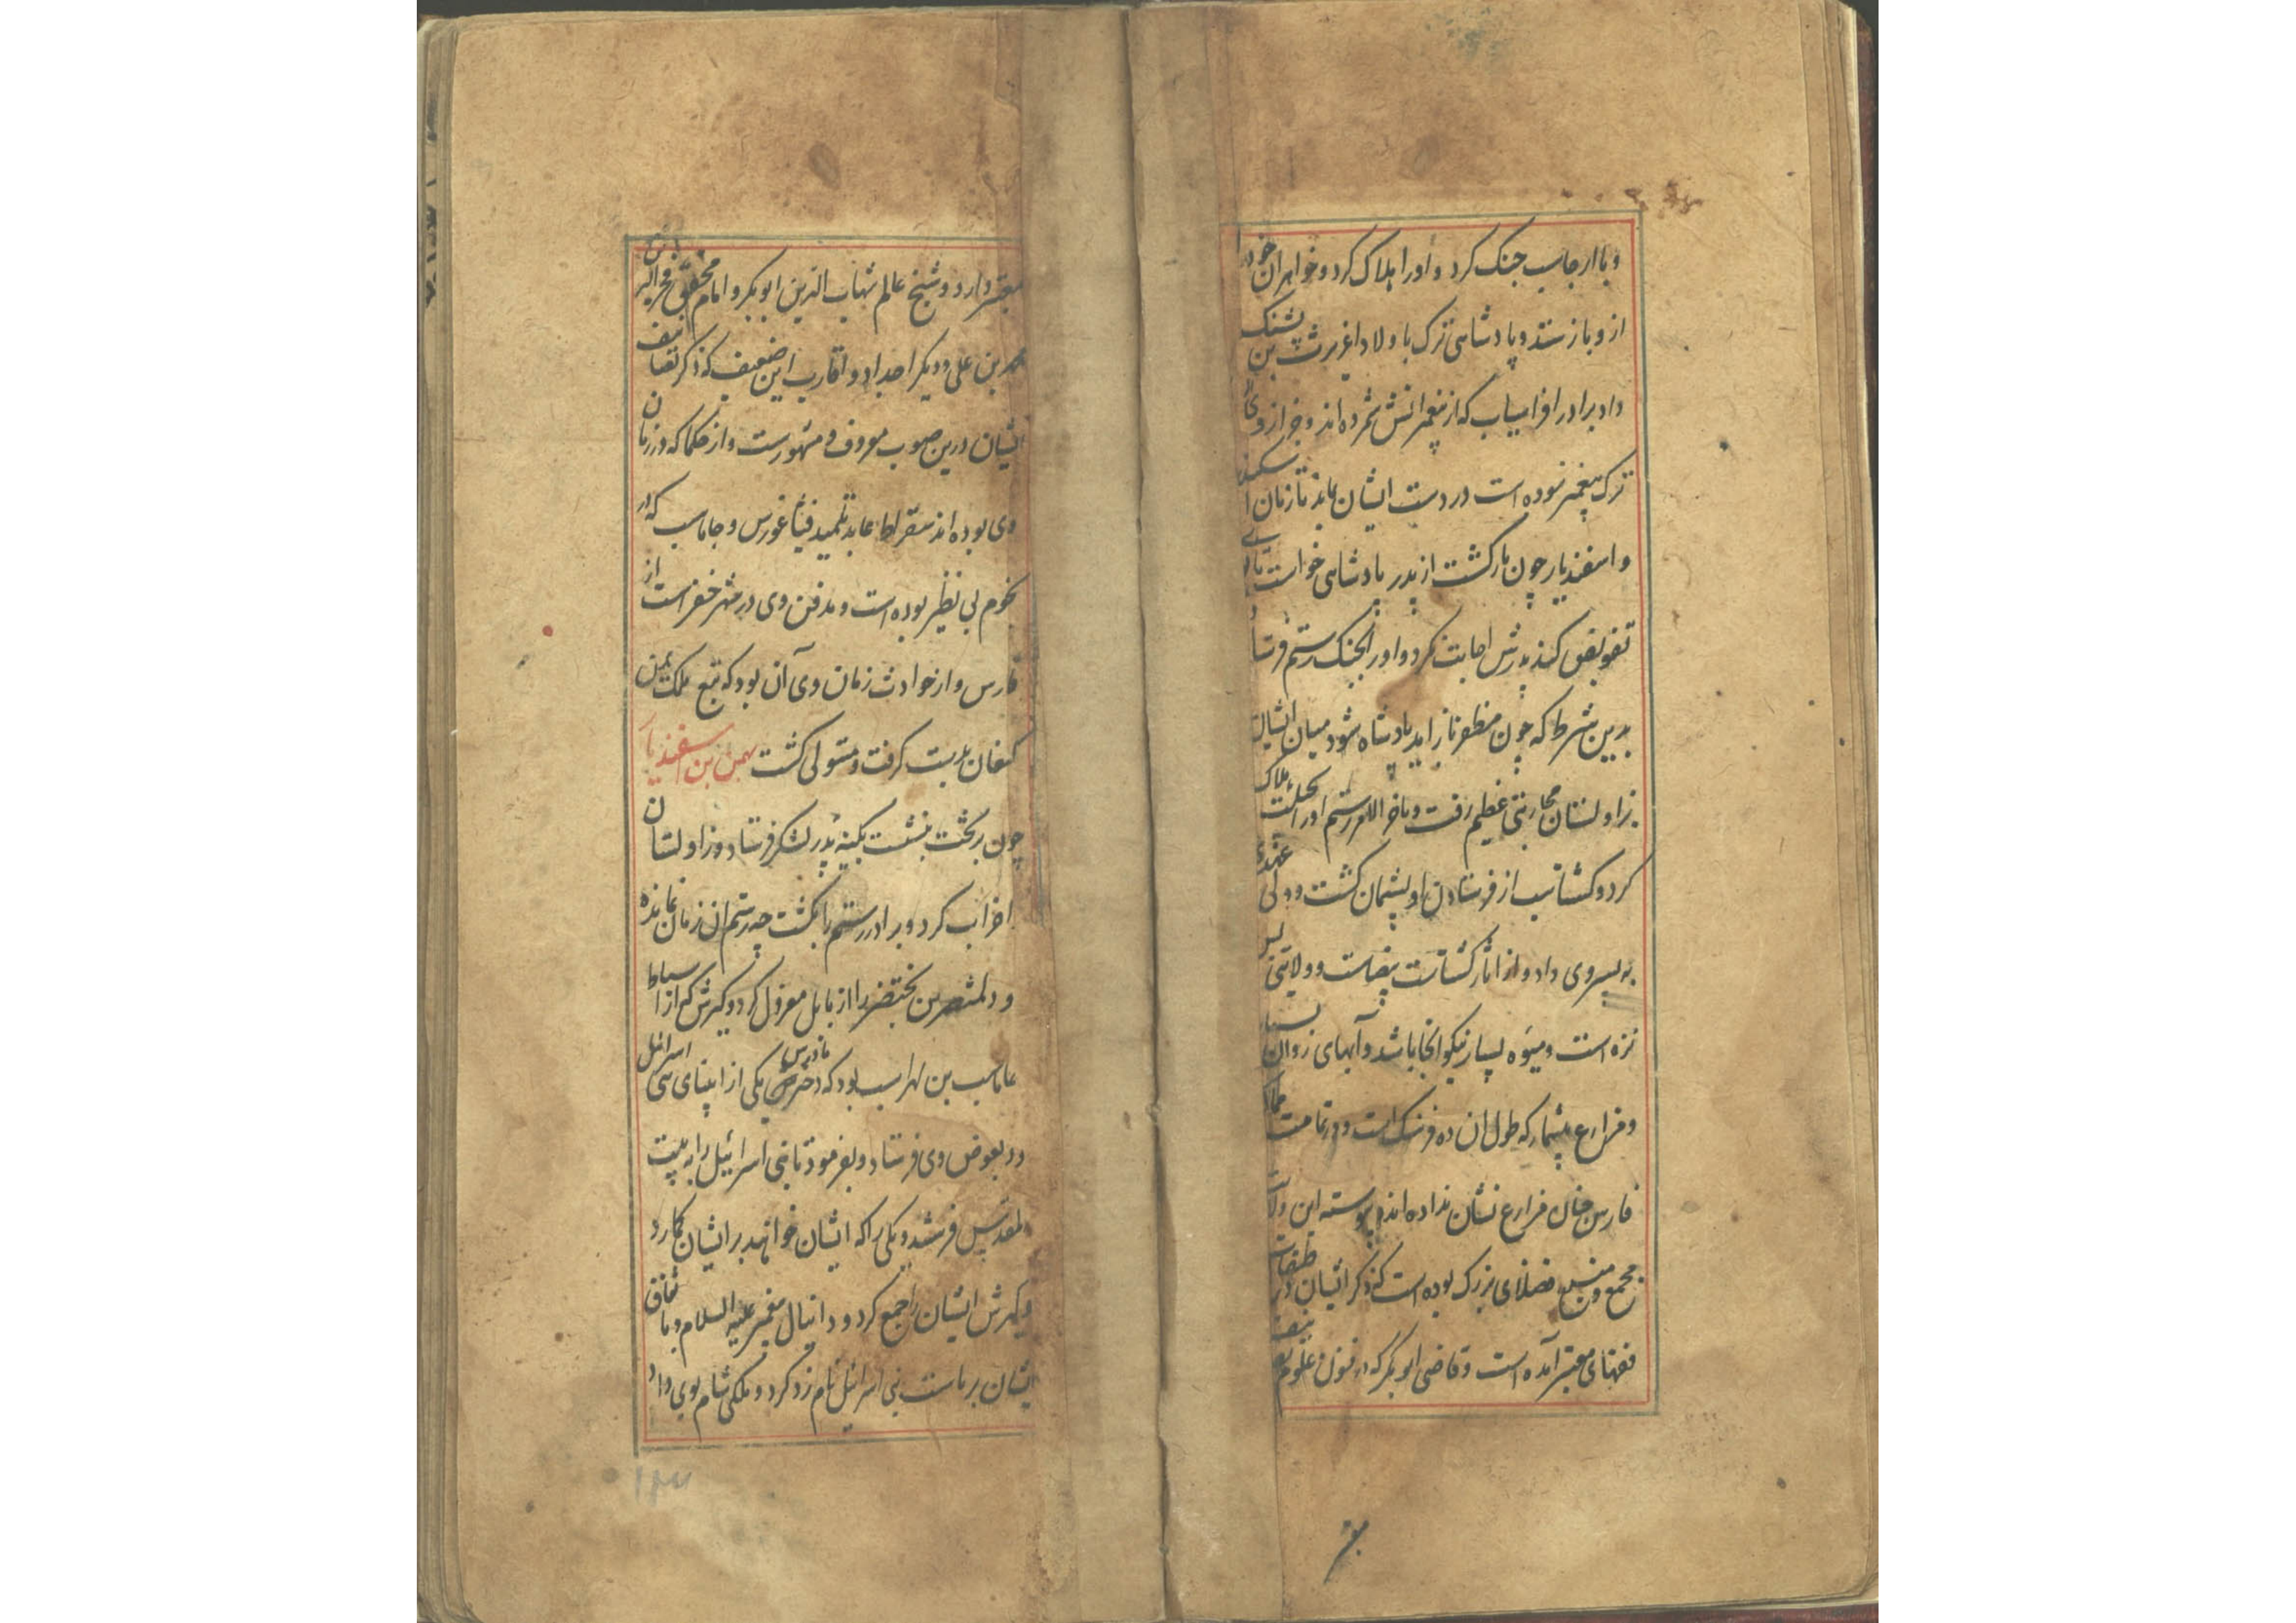 و با ارجاسب جنک کرد و اورا هلاک کرد و خواهران خود را
ازو باز ستد و پادشاهی ترک با ولاد اغریرث بن پشنک
داد برادر افراسیاب که از پیغمبرانش شمرده اند و جز از وی
ترک پیغمبر نبوده است در دست ایشان بماند تا زمان
و اسفندیار چون بازکشت از پدر پادشاهی خواست تا
تفویض کند پدرش اجابت نکرد و اورا بجنک رستم فرستاد
بدین شرط که چون مظفر باز اید پادشاه شود میان ایشان
بزاولستان محاربتی عظیم رفت و باخر الامر رستم اورا هلاک
کرد و کشتاسب از فرستادن او پشیمان کشت و ولی عهدی
به پسر وی داد و از اثار کشتاسب بیضاست و ولایتی بس
نزه است و میوه بسیار نیکو انجا باشد و آبهای روان بسیار
و مزارع بیشمار که طول ان ده فرسنک است و در تمامت ممالک
فارس چنان مزارع نشان نداده اند و پیوسته این ولایت
مجمع و منبع فضلای بزرک بوده است که ذکر ایشان در طبقات
فقهای معتبر آمده است و قاضی ابوبکر که در فنون علوم
معتبر
معتبر دارد و شیخ عالم شهاب الدین ابوبکر و امام محقق فخر الدین
محمد بن علی و دیکر اجداد و اقارب این ضعیف که ذکر تصانیف
ایشان درین صوب معروف و مشهورست و از حکما که در زمان
وی بوده اند سقراط عابد تلمید فیثاغورس و جاماسب که در
نجوم بی نظیر بوده است و مدفن وی در شهر خفر است از
فارس و از حوادث زمان وی آن بود که تبع ملک یمن
کنعان بتربیت کرفت و متولی کشت بهمن بن اسفندیار
چون بر تخت بنشست بکینه پدر لشکر فرستاد و زاولستان
خراب کرد و برادر رستم را بکشت چه رستم ان زمان نمانده
و دلمتصر بن بختنصر را از بابل معزول کرد و کیرش که از اسباط
جاماسب بن لهراسب بود که مادرش دختر یکی از ابنای بنی اسرائیل
بود بعوض وی فرستاد و بفرمود تا بنی اسرائیل را به بیت
المقدس فرستد و یکی را که ایشان خواهند بر ایشان کمارد
و کیرش ایشان را جمع کرد و دانیال پیغمبر علیه السلام و باتفاق
ایشان بریاست بنی اسرائیل نام زد کرد و ملکی شام بوی داد